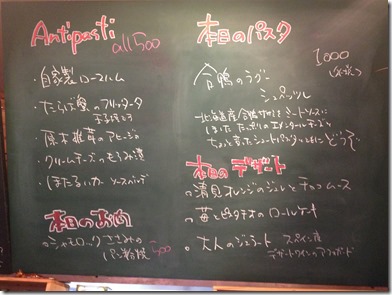 Antipasti all 500
・自家製ロースハム
・たらば蟹のフリッタータ
・原木椎茸のアヒージョ
・クリームチーズのもろみ漬
・ほたるいか ソースバーニャ
本日のお肉
シャモロック ささみの
パン粉焼 500
本日のパスタ
1000
合鴨のラグー
シュペッツレ
北海道産合鴨 ミートソースに
たっぷりのエメンタールチーズで
どうぞ
本日のデザート
清見オレンジのジュレとチョコムース
苺とピスタチオのロールケーキ
大人のジェラート スペイン産
デザートワインのアフォガード